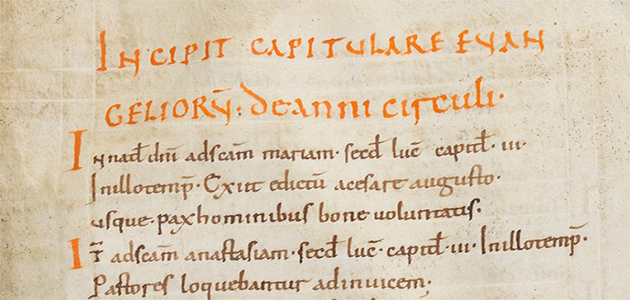 INCIPIT CAPITULARE EVAN
GELIORŪ: DE ANNI CIRCULI·
In nat̄ dnī ad scam̄ mariam· secd̄ luc̄ capit̄l· iii·
In illo temp̄r· Exiit edictū a cesare augusto·
usque· pax hominibus bone voluntatis·
It̄ ad scam̄ anastasiam· secd̄ luc̄· capit̄l· iii· In illo temp̄r·
Pastores loquebantur ad invicem·